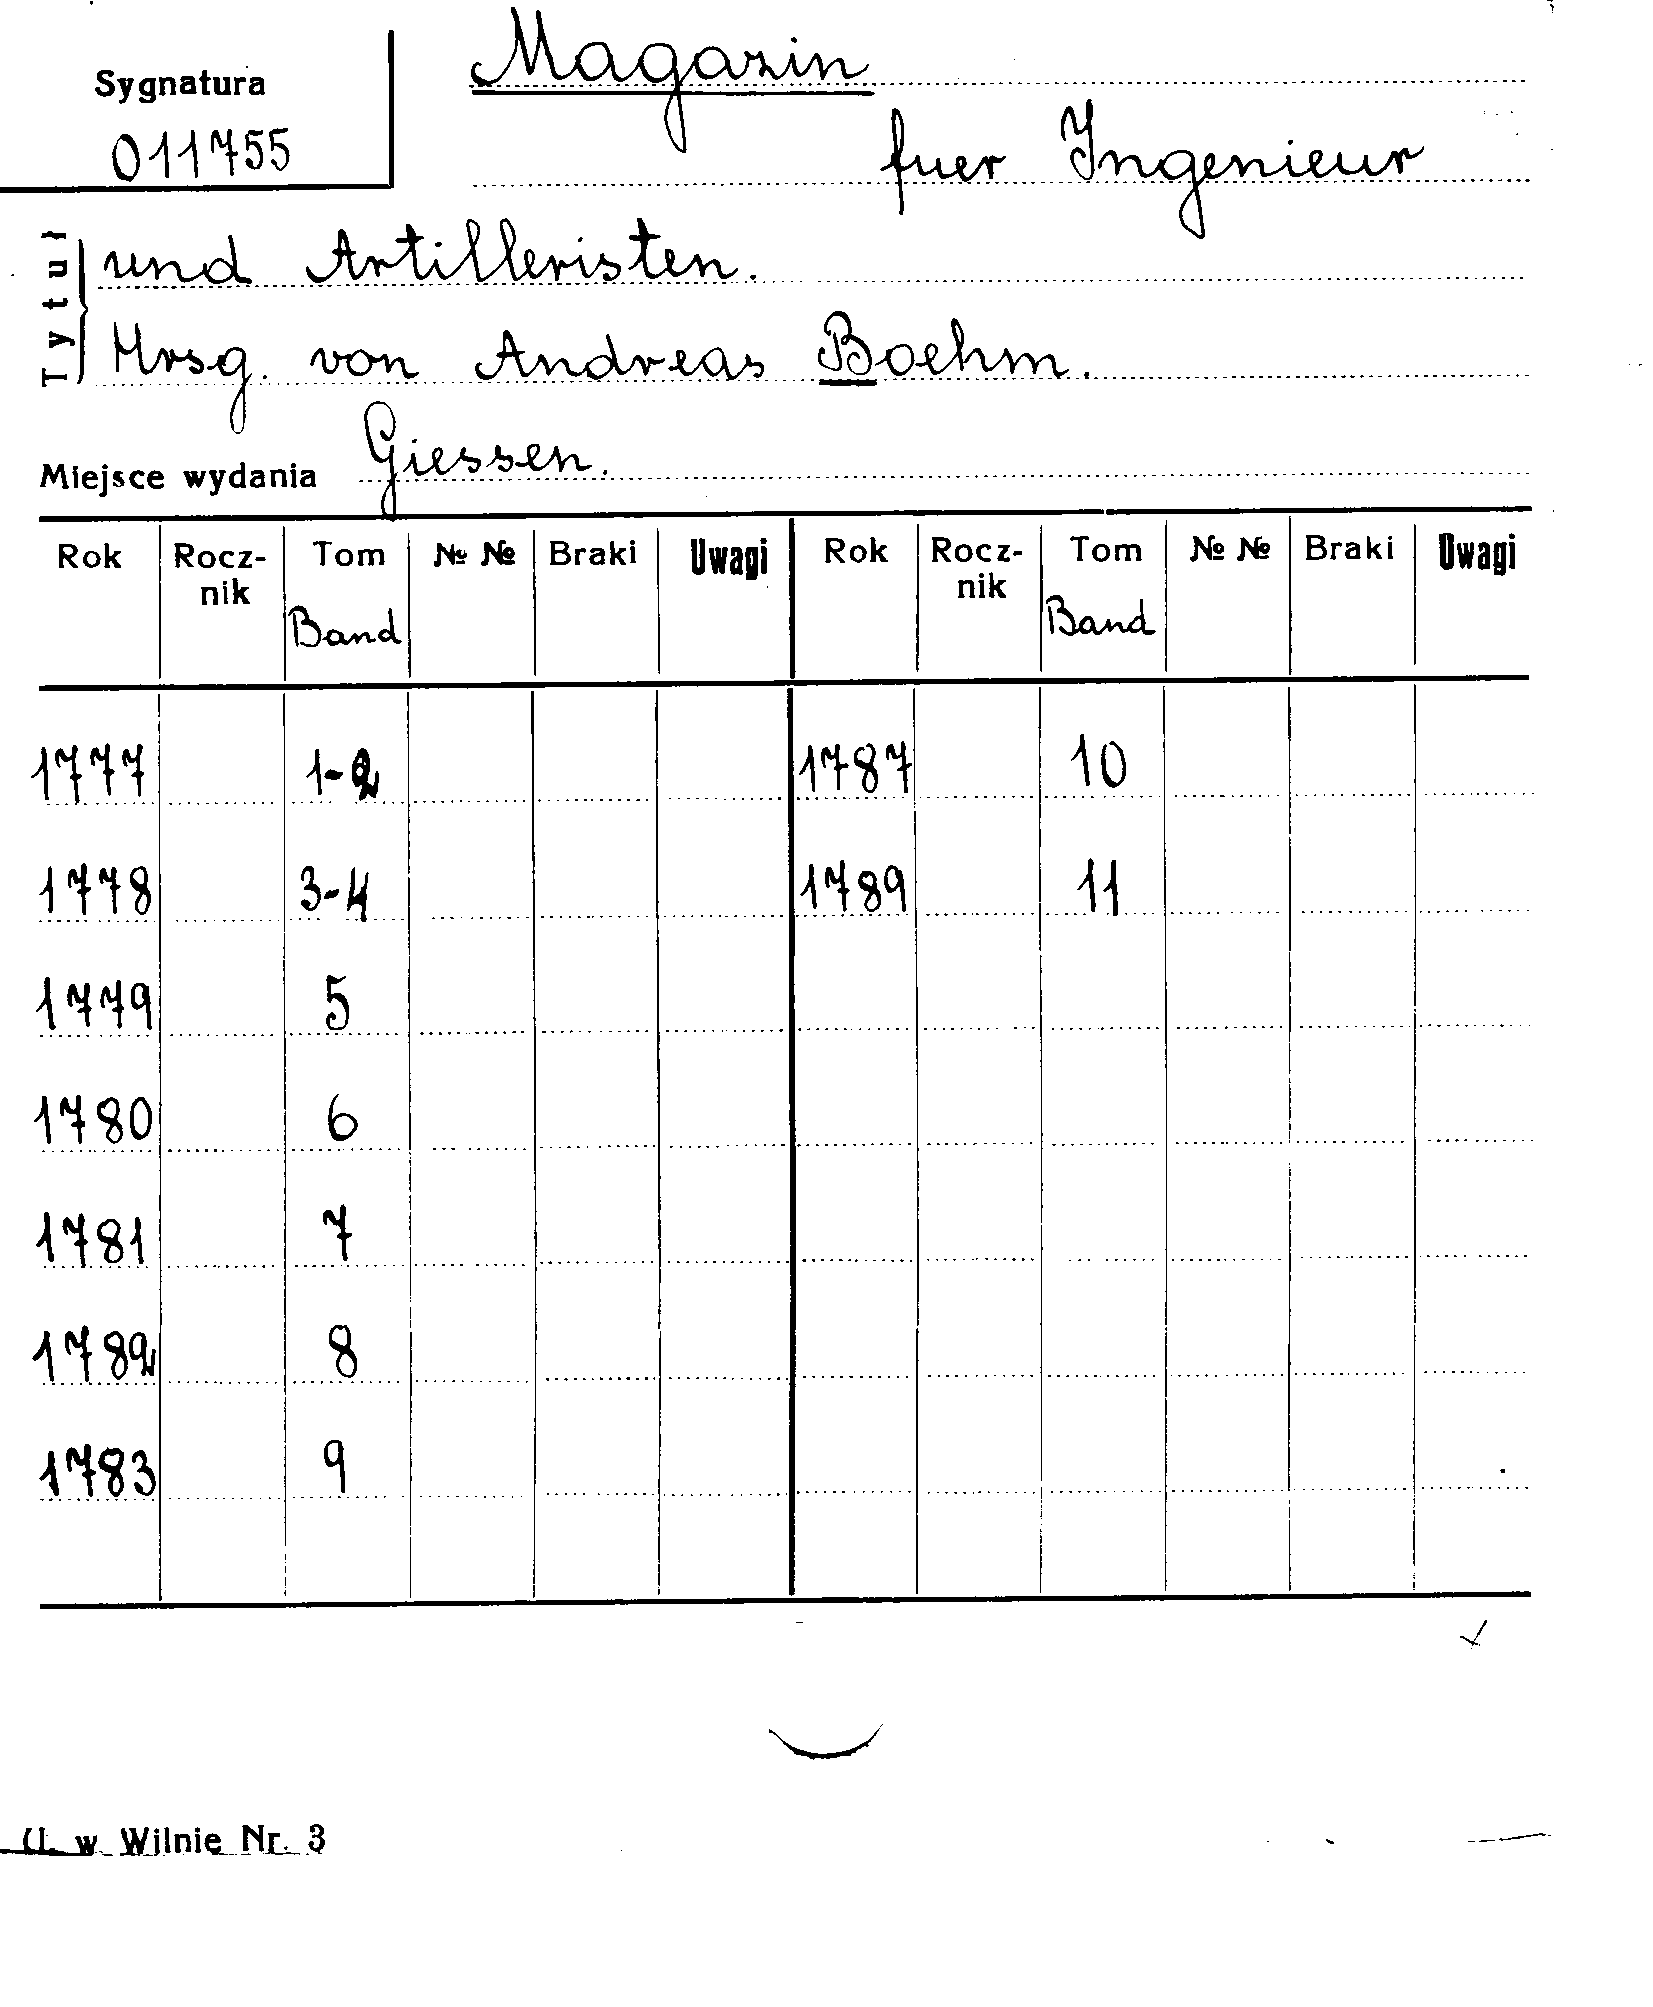 Sygnatura
011755
Magazin
fuer Ingenieur
Tytuł
und Artilleristen.
Hrsg. von Andreas Boehm.
Miejsce wydania Giessen.
Rok Rocz-nik Tom Band № № Braki Uwagi Rok Rocz-nik Tom Band № № Braki Uwagi
1777 1-2 1787 10
1778 3-4 1789 11
1779 5
1780 6
1781 7
1782 8
1783 9
U. w Wilnie Nr. 3